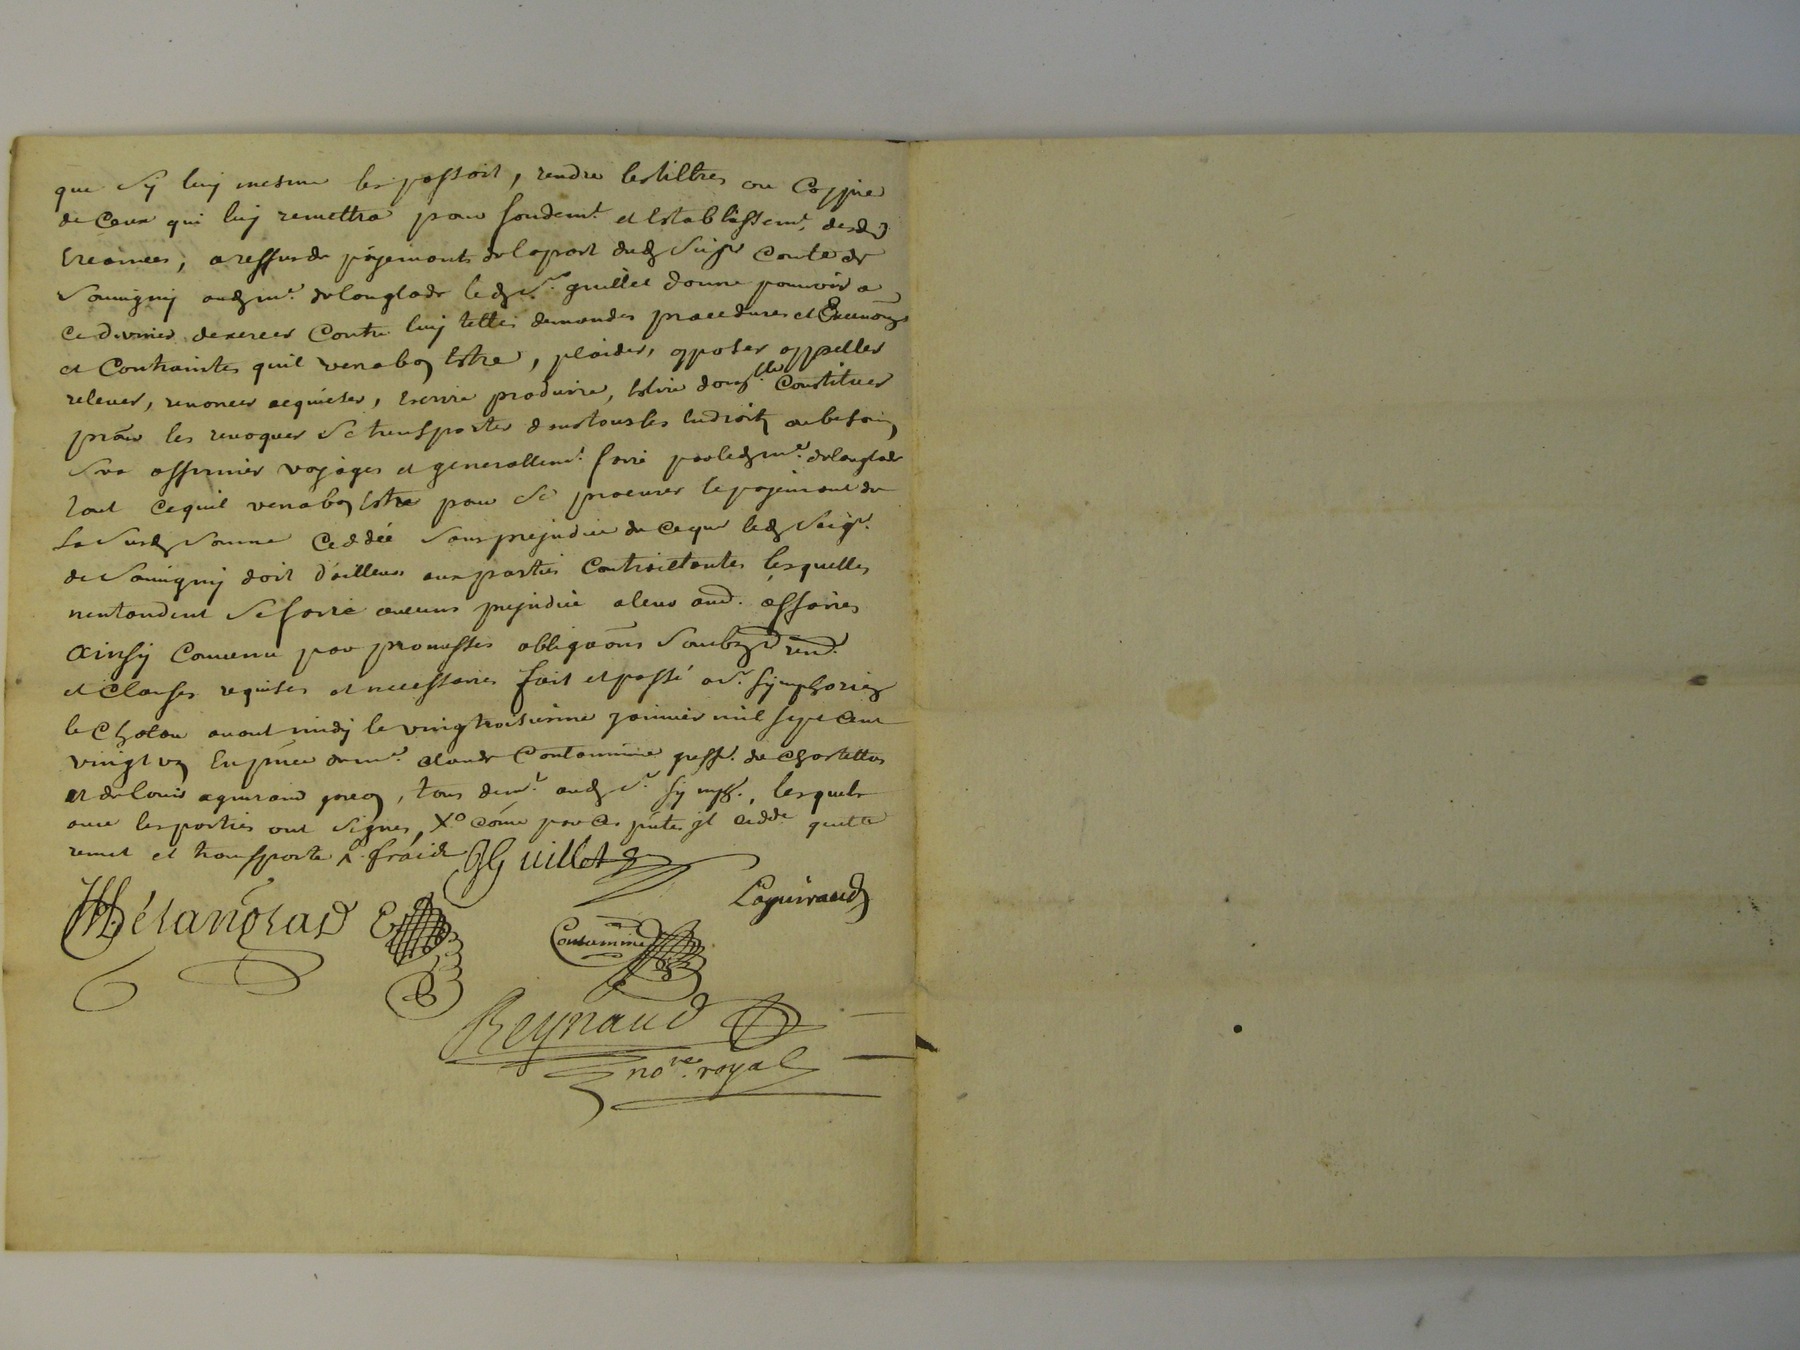 que sy luy mesme les passoit, rendre les tiltres ou coppie
de ceux qui luy remettra pour fondemt. et establissemt. desd.
creances, a reffus de payement de la part dud seigr comte de
Souvigny aud mr. delanglade led sr. guillet donne pouvoir a
ce dernier dexercer contre luy telles demandes procedures et
et contraintes quil verra bon estre, plaider, opposer appeller
relever, renoncer acquieser, escrire produire, eslire domlle constituer
les revoquer se transporter dans tous les endroits au besoin
affirmer voyages et generallemt. faire par led mr. delanglade
tout ce quil verra bon estre pour se procurer le payement de
la susd somme ceddée sans prejudice de ce que led seigr.
de Souvigny doit d'ailleurs aux parties contractantes lesquelles
nentendent se faire aucuns prejudice a leur aud. affaires
ainsy convenu par promesses obligaons
et clauses requises et necessaires fait et passé a st. symphorien
le chatau avant midy le vingtroisieme janvier mil sept cent
vingt un en pnce de mr. claude Contamine greffr. de chastellus
et de louis aguiraud, tous demt. aud st. symph., lesquels
avec les parties ont signes, Xo come par ces pntes il cedde quitte
remet et transporte
JGuillet
Delanglade
Laguiraud
Contamine
Reynaud
nore. royal